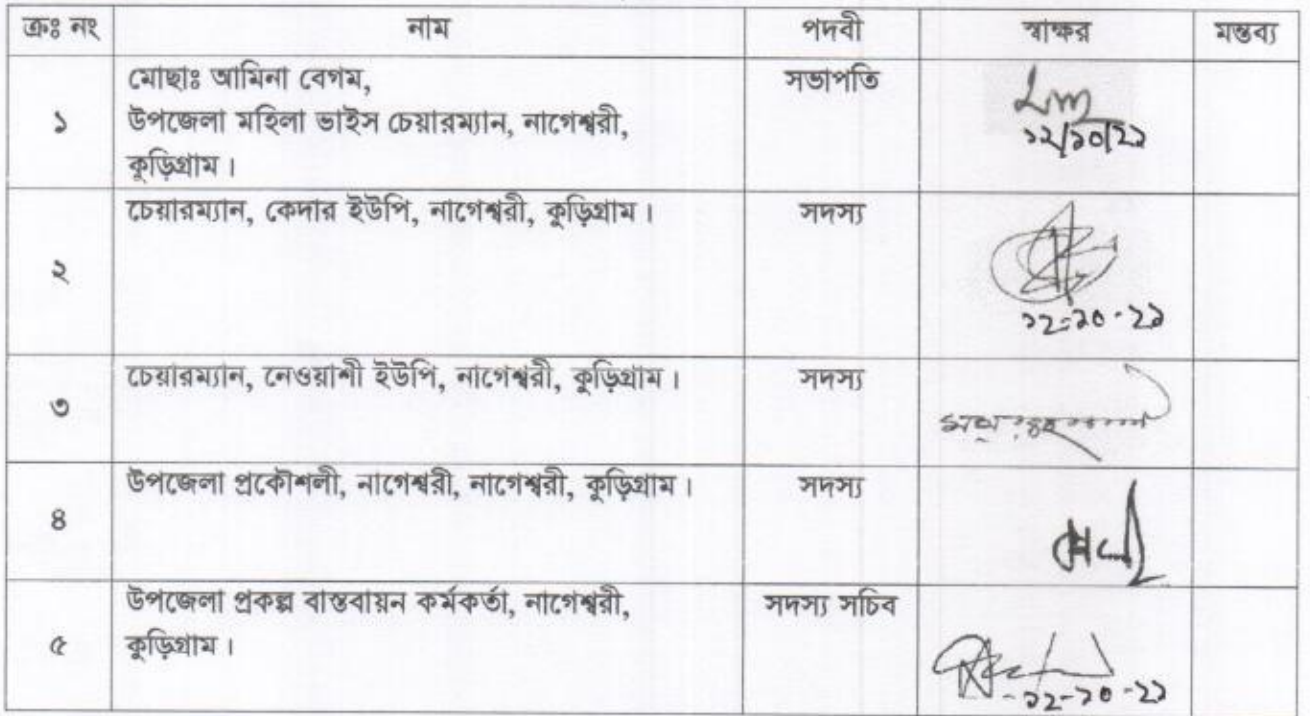 ক্রঃ নং নাম পদবী স্বাক্ষর মন্তব্য
মোছাঃ আমিনা বেগম, সভাপতি
১ উপজেলা মহিলা ভাইস চেয়ারম্যান, নাগেশ্বরী,
১২/১০/২১
কুড়িগ্রাম।
চেয়ারম্যান, কেদার ইউপি, নাগেশ্বরী, কুড়িগ্রাম। সদস্য
২
১২-১০-২১
চেয়ারম্যান, নেওয়াশী ইউপি, নাগেশ্বরী, কুড়িগ্রাম। সদস্য
৩
উপজেলা প্রকৌশলী, নাগেশ্বরী, নাগেশ্বরী, কুড়িগ্রাম। সদস্য
৪
উপজেলা প্রকল্প বাস্তবায়ন কর্মকর্তা, নাগেশ্বরী, সদস্য সচিব
৫ কুড়িগ্রাম।
১২-১০-২১